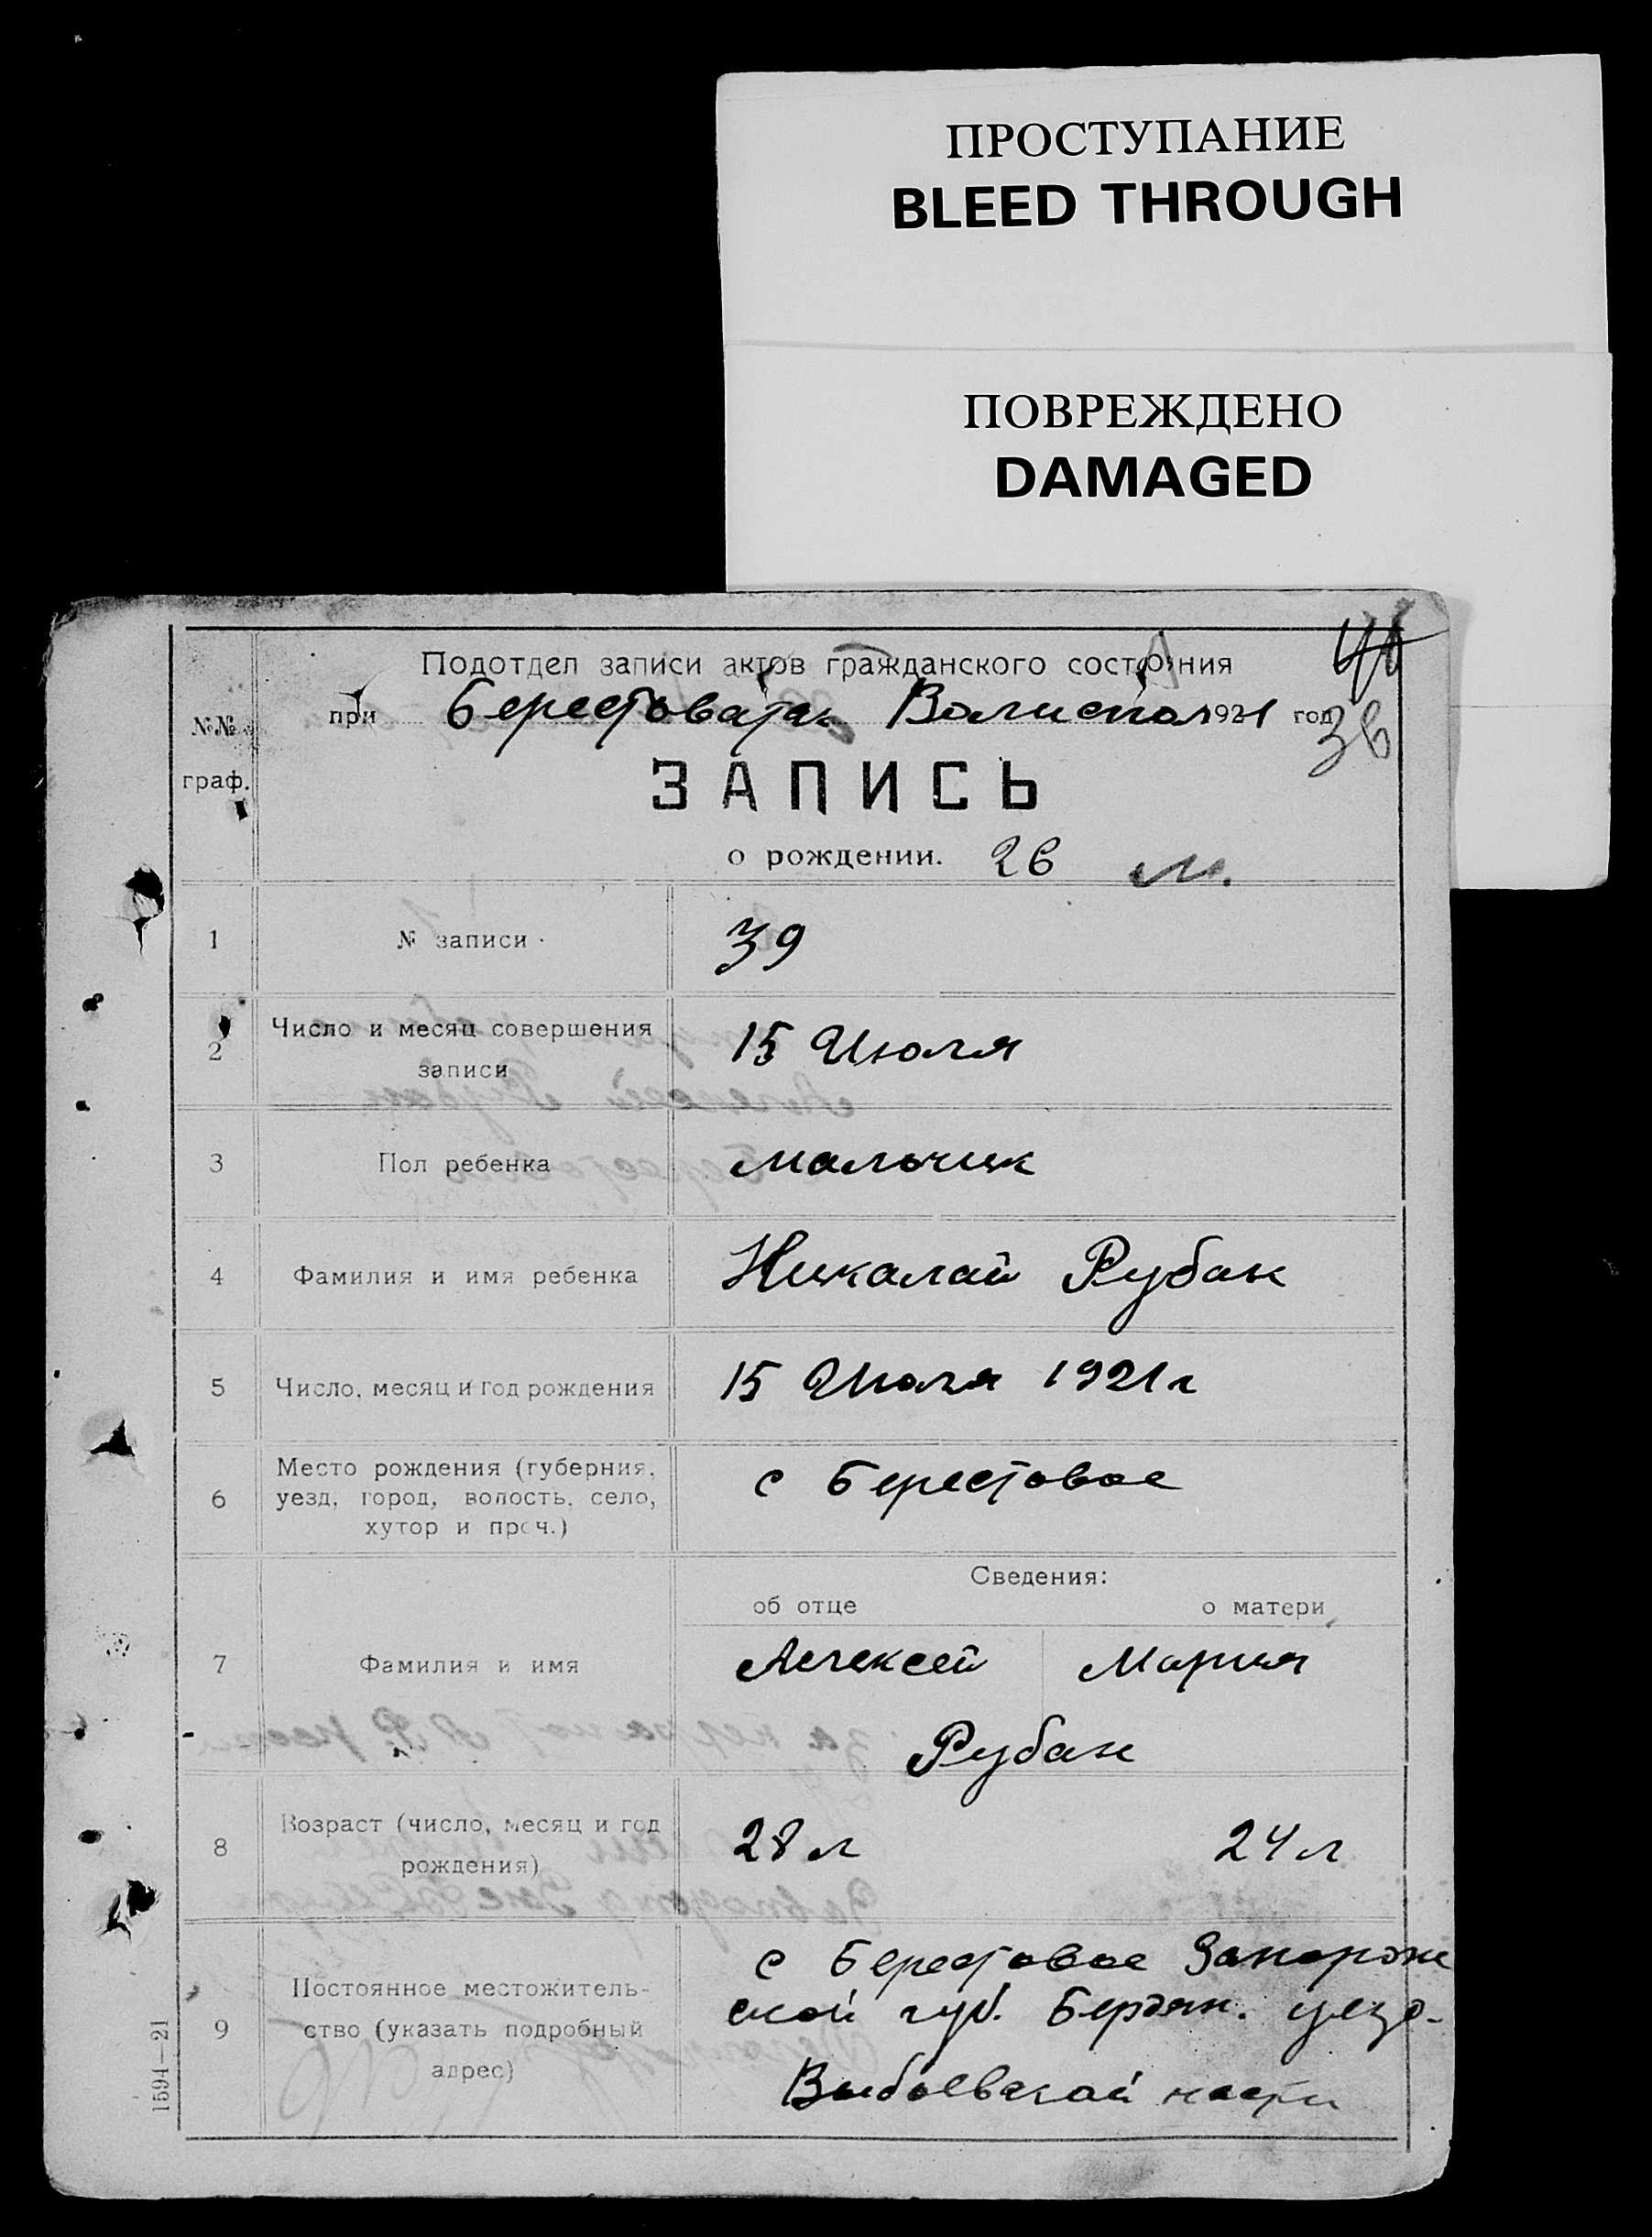 ПРОСТУПАНИЕ
BLEED THROUGH
ПОВРЕЖДЕНО
DAMAGED
Подотдел записи актов гражданского состояния
при Берестоватск 1921 год
№№ граф.
ЗАПИСЬ
о рождении. 26 м.
1 № записи 39
2 Число и месяц совершения
записи
15 Июля
3 Пол ребенка мальчик
4 Фамилия и имя ребенка Николай Рубан
5 Число, месяц и год рождения 15 Июля 1921 г
6 Место рождения (губерния,
уезд, город, волость, село,
хутор и проч.)
с Берестовое
Сведения:
об отце о матери
7 Фамилия и имя Алексей Мария
Рубан
8 Возраст (число, месяц и год
рождения)
28 л 24 л
9 Постоянное местожитель-
ство (указать подробный
адрес)
с Берестовое Запорож
ской губ. Бердян. уезд.
1594—21